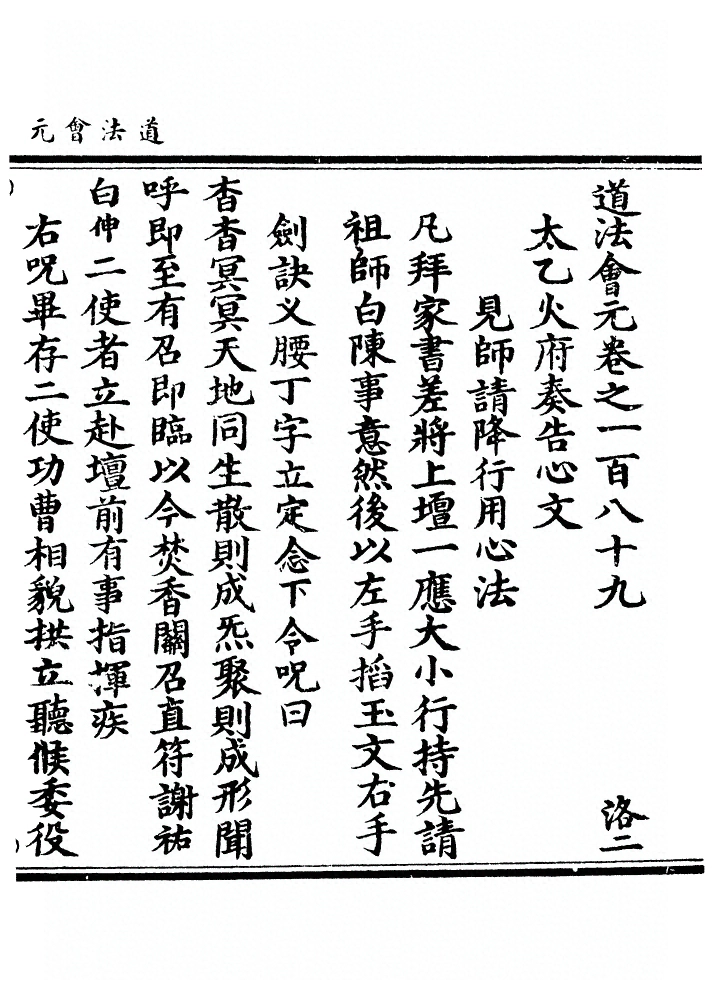 道法會元
道法會元卷之一百八十九 洛二
太乙火府奏告心文
見師請降行用心法
凡拜家書差將上壇一應大小行持先請
祖師白陳事意然後以左手搯玉文右手
劍訣义腰丁字立定念下令呪曰
杳杳冥冥天地同生散則成炁聚則成形聞
呼即至有召即臨以今焚香關召直符謝祐
白伸二使者立赴壇前有事指揮疾
右呪畢存二使功曹相貌拱立聽候委役